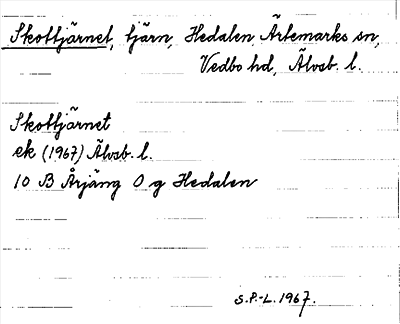 Skottjärnet, tjärn, Hedalen, Ärtemarks sn,
Vedbo hd, Älvsb. l.
Skottjärnet
ek (1967) Älvsb. l.
10 B Årjäng 0 g Hedalen
S.P.-L. 1967.